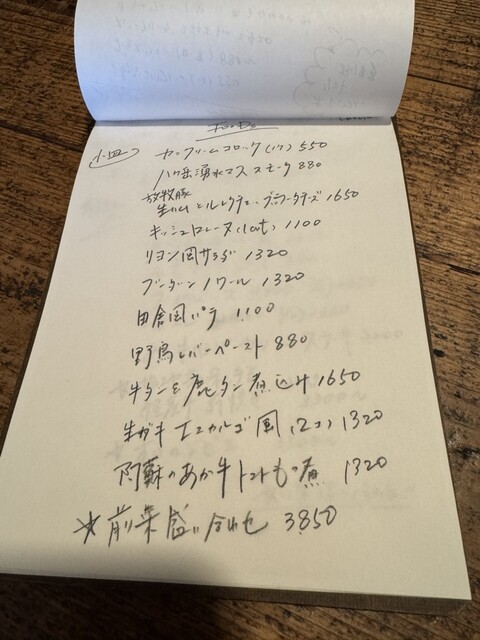 FOOD
小皿
カニクリームコロッケ(1ケ) 550
八ヶ岳湧水マス スモーク 880
放牧豚
生ハム とルレクチェ、ブラータチーズ 1650
キッシュロレーヌ(1cut) 1100
リヨン風サラダ 1320
ブーダン ノワール 1320
田舎風パテ 1100
野鳥レバーペースト 880
牛タンと鹿タン煮込み 1650
生ガキ エスカルゴ風(2コ) 1320
阿蘇のあか牛トマトもつ煮 1320
☆前菜盛り合わせ 3850